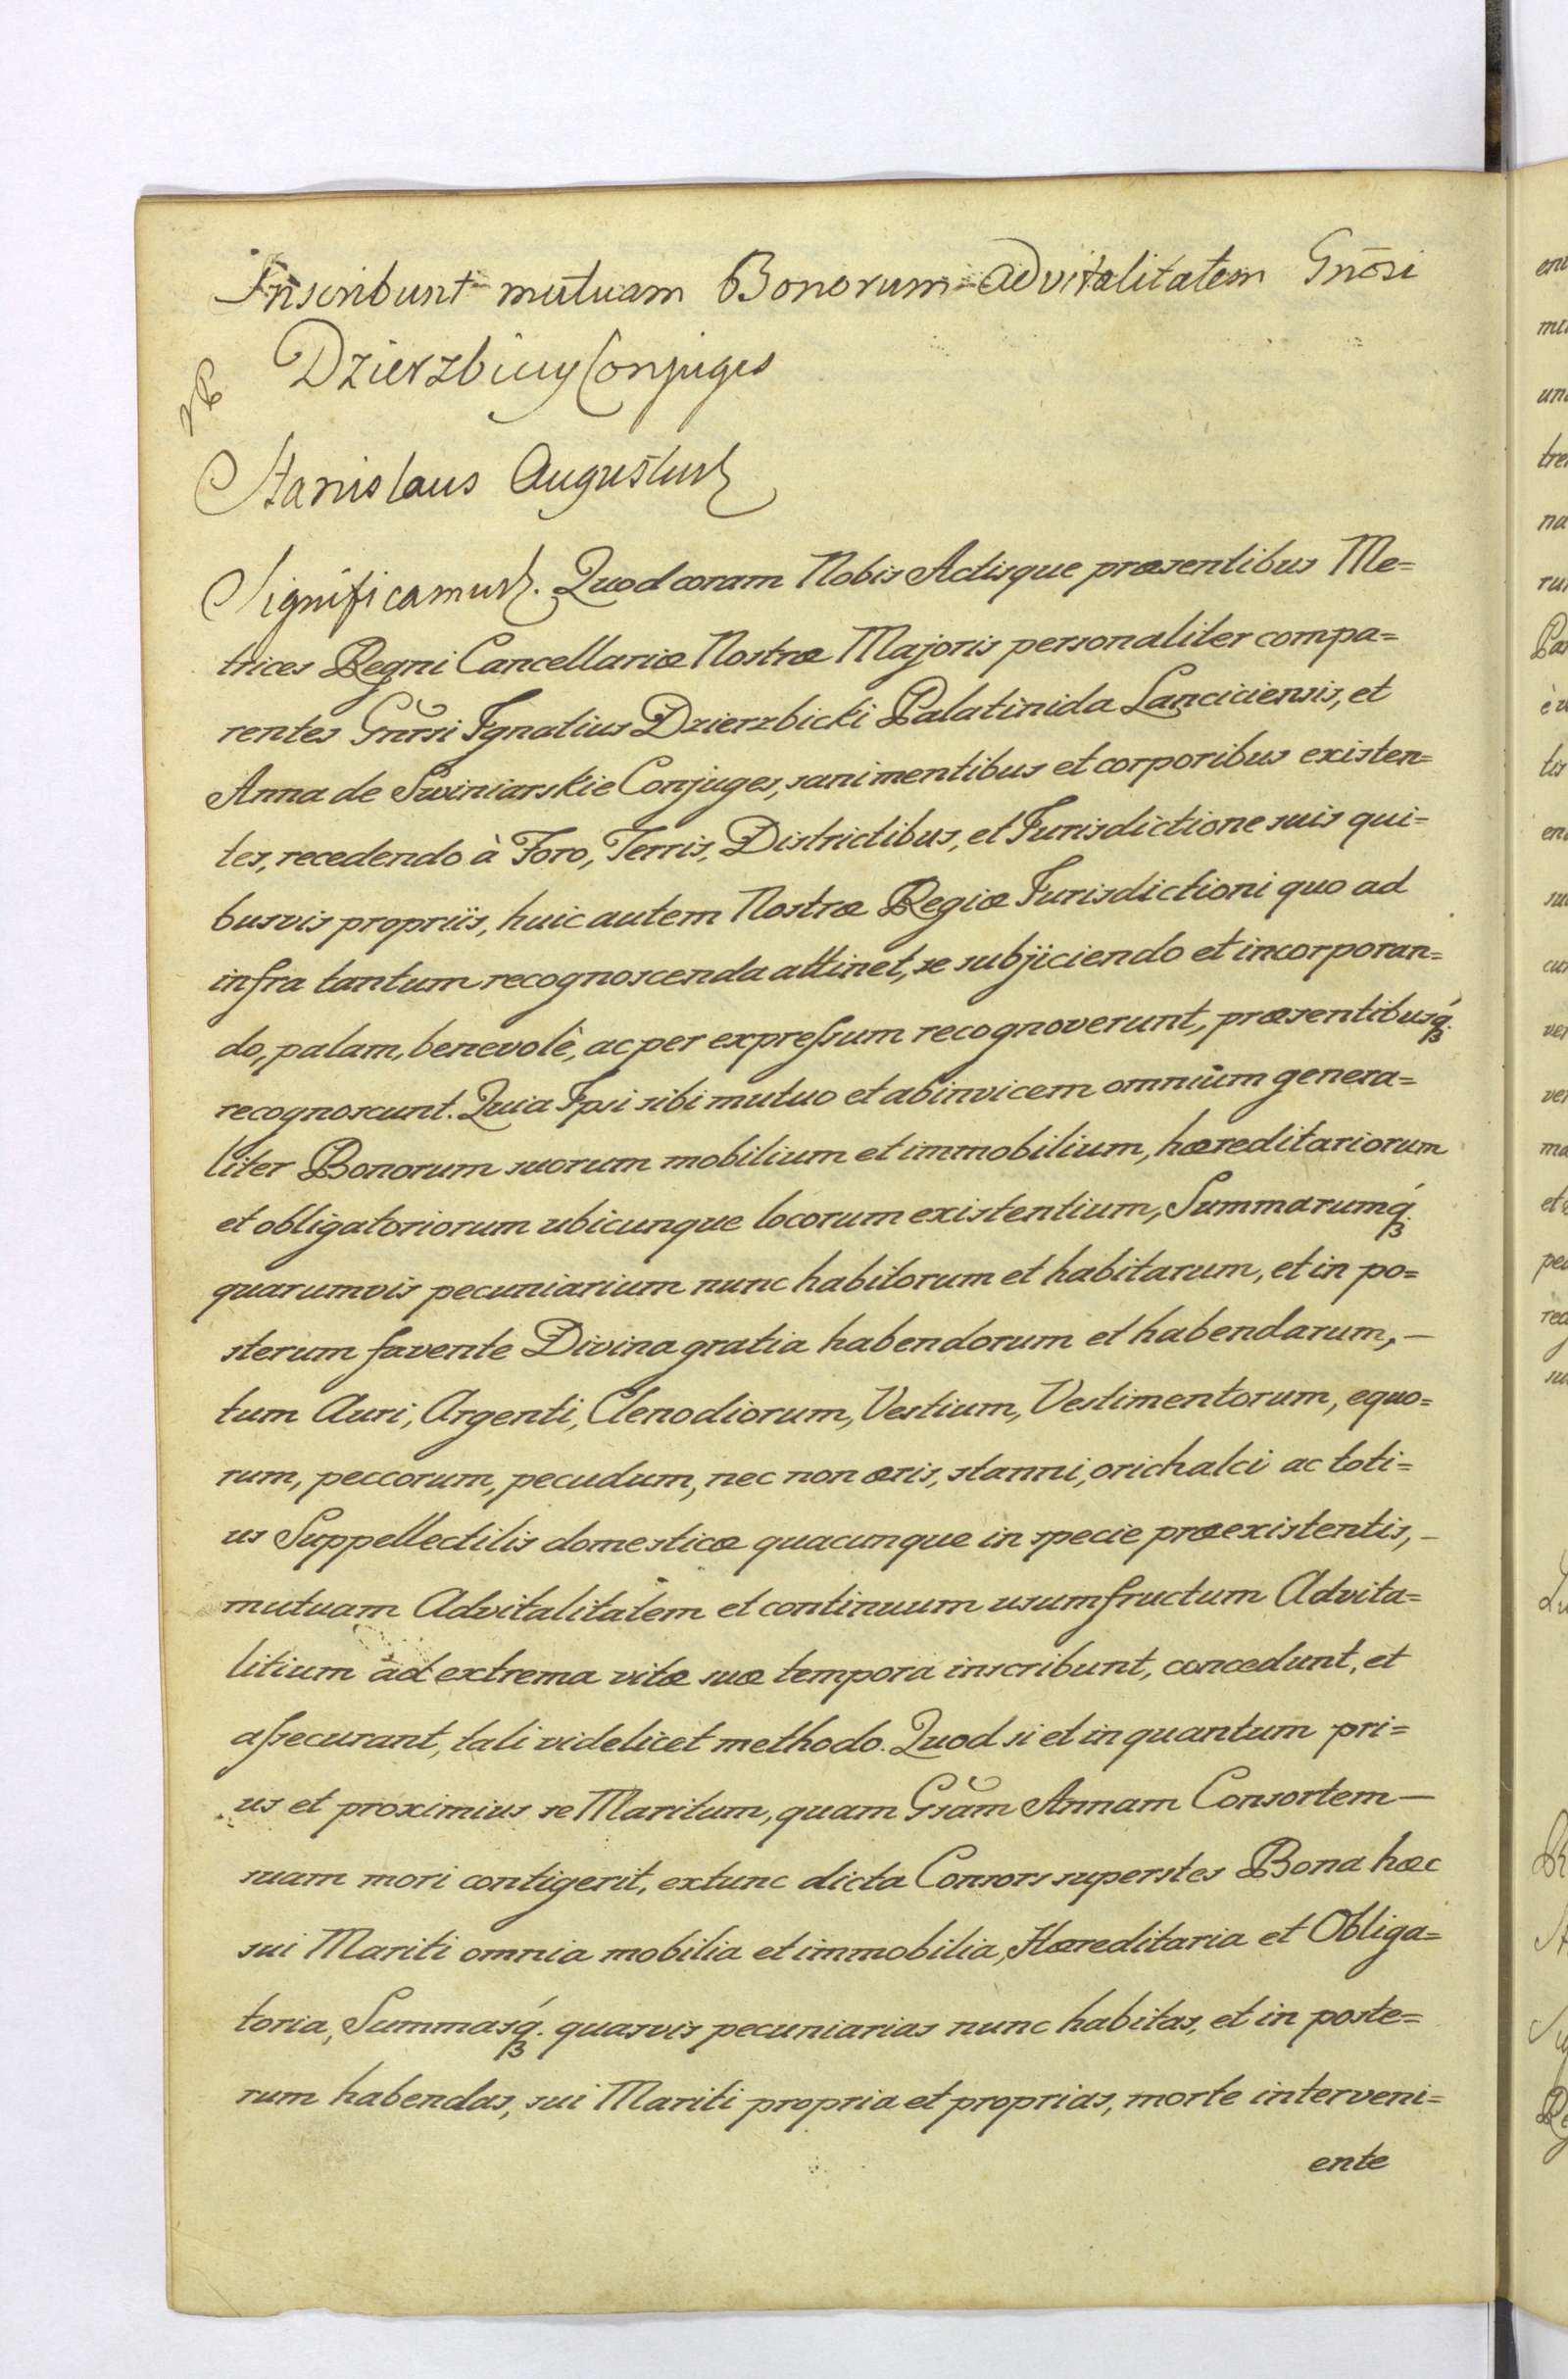 Inscribunt mutuam Bonorum Advitalitatem Gnōsi
Dzierzbiccy Conjuges
Stanislaus Augustus
Significamus. Quod coram Nobis Actisque præsentibus Me=
trices Regni Cancellariæ Nostræ Majoris personaliter compa=
rentes Gnrsi Ignatius Dzierzbicki Palatinida Lanciciensis, et
Anna de Swiniarskie Conjuges, sani mentibus et corporibus existen=
tes, recedendo à Foro, Terris, Districtibus, et Jurisdictione suis qui=
busvis propriis, huic autem Nostræ Regiæ Jurisdictioni quo ad
infra tantum recognoscenda attinet, se subjiciendo et incorporan=
do, palam, benevolè, ac per expreſsum recognoverunt, præsentibusq́ꝫ
recognoscunt. Quia Ipsi sibi mutuo et abinvicem omniūm genera=
liter Bonorum suorum mobilium et immobilium, hæreditariorum
et obligatoriorum ubicunque locorum existentium, Summarumq́ꝫ
quarumvis pecuniarium nunc habitorum et habitarum, et in po=
sterum favente Divina gratia habendorum et habendarum, —
tum Auri, Argenti, Clenodiorum, Vestium, Vestimentorum, equo=
rum, peccorum, pecudum, nec non æris, stanni, orichalci ac toti=
us Suppellectilis domesticæ quacunque in specie præexistentis, —
mutuam Advitalitatem et continuum usumfructum Advita=
litium ad extrema vitæ suæ tempora inscribunt, concedunt, et
aſsecurant, tali videlicet methodo. Quod si et in quantum pri=
us et proximius se Maritum, quam Gsam Annam Consortem —
suam mori contigerit, extunc dicta Consors superstes Bona hæc
sui Mariti omnia mobilia et immobilia, Hæreditaria et Obliga=
toria, Summasq́ꝫ. quasvis pecuniarias nunc habitas, et in poste=
rum habendas, sui Mariti propria et proprias, morte interveni=
ente